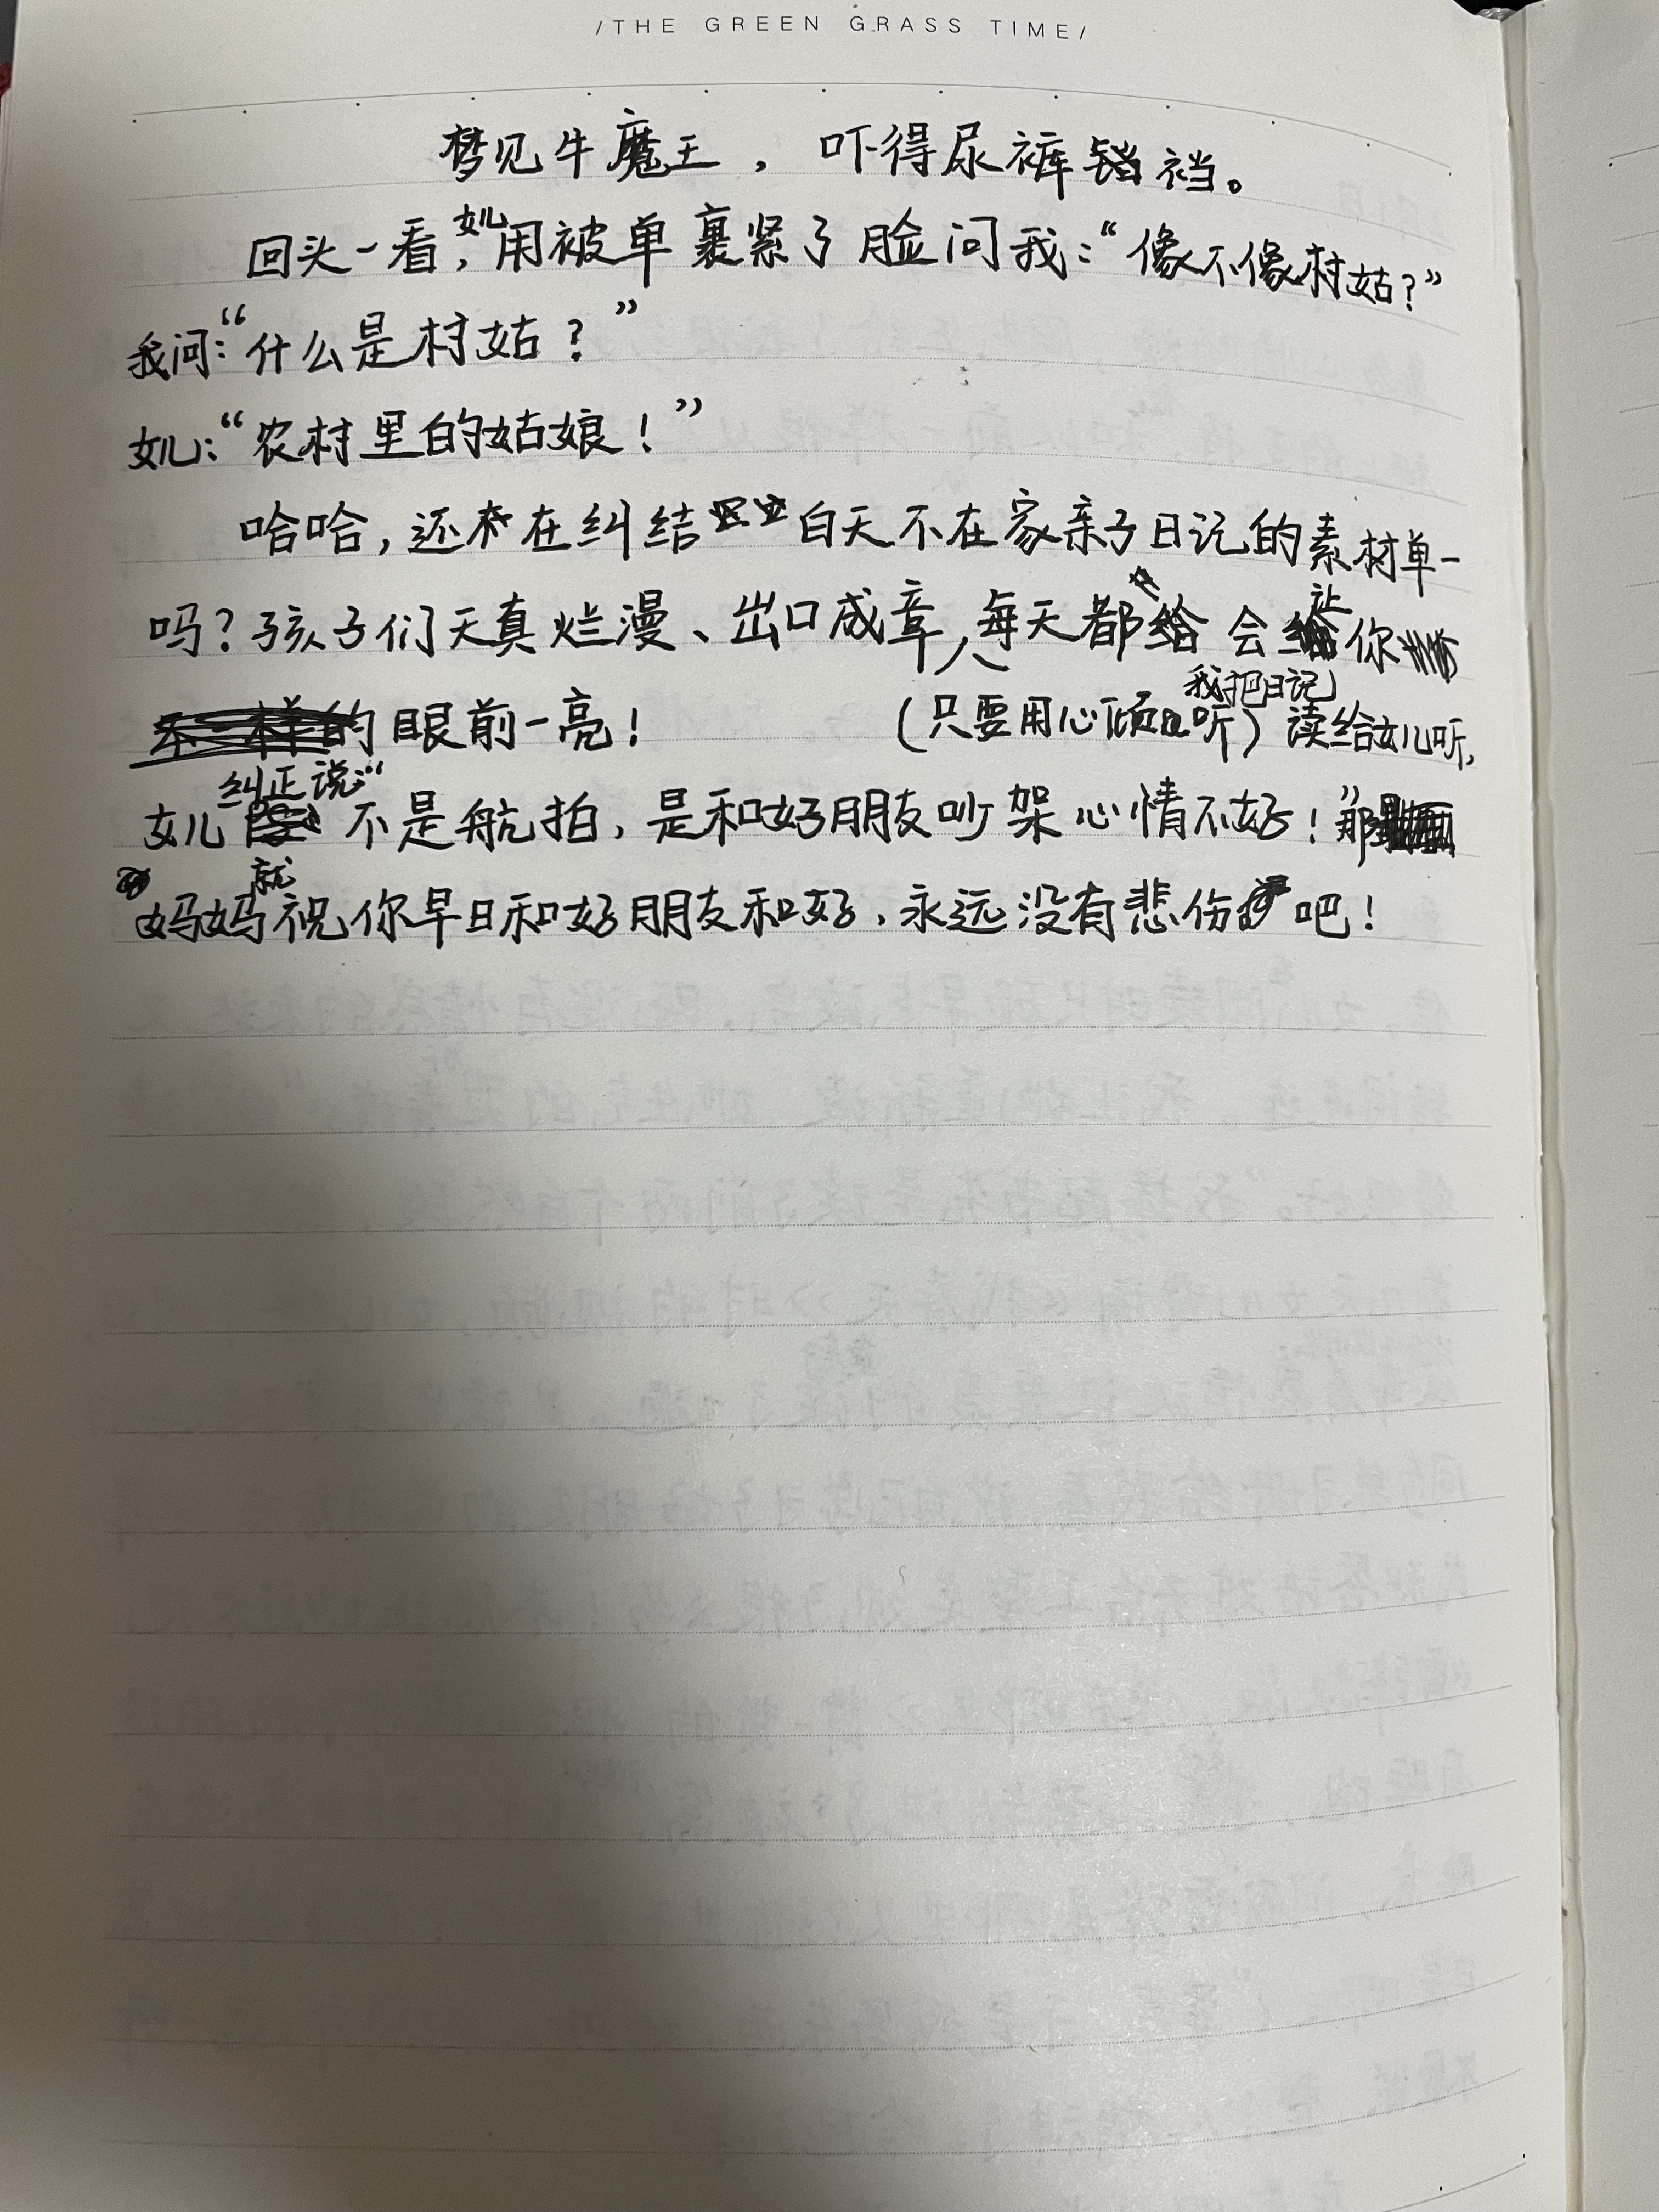 /THE GREEN GRASS TIME/
梦见牛魔王，吓得尿裤裆。
回头一看，女儿用被单裹紧了脸问我：“像不像村姑？”
我问：“什么是村姑？”
女儿：“农村里的姑娘！”
哈哈，还在纠结白天不在家亲子日记的素材单一
吗？孩子们天真烂漫、出口成章，每天都会让你
眼前一亮！（只要用心倾听）我把日记读给女儿听，
女儿纠正说：“不是航拍，是和好朋友吵架心情不好！”那
妈妈就祝你早日和好朋友和好，永远没有悲伤吧！